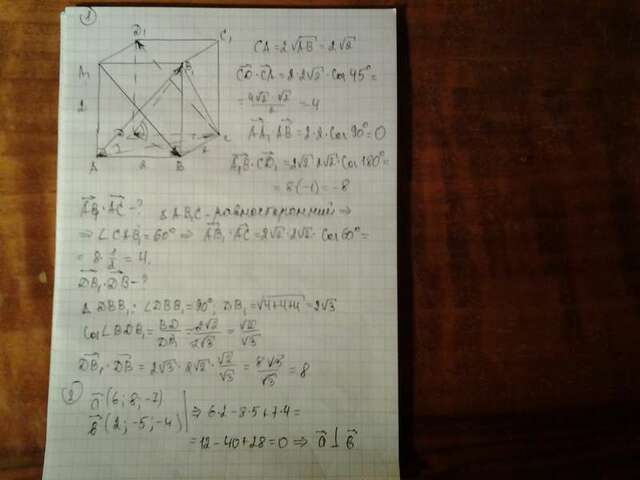 ①
D₁ C₁
A₁ B₁
2
D C
A 2 B
CA = 2√AB = 2√2
CD · CA = 2 · 2√2 · cos 45° =
= 4√2 · √2 / 2 = 4
AA₁ · AB = 2 · 2 · cos 90° = 0
A₁B · CD₁ = 2√2 · 2√2 · cos 180° =
= 8(-1) = -8
AB₁ · AC - ? Δ AB₁C - равносторонний ⇒
⇒ ∠CAB₁ = 60° ⇒ AB₁ · AC = 2√2 · 2√2 · cos 60° =
= 8 · 1/2 = 4.
DB₁ · DB - ?
Δ DBB₁: ∠DBB₁ = 90°; DB₁ = √4+4+4 = 2√3
cos∠BDB₁ = BD/DB = 2√2/2√3 = √2/√3
DB₁ · DB = 2√3 · 2√2 · √2/√3 = 8√3/√3 = 8
②
a (6; 8; -7)
b (2; -5; -4) ⇒ 6·2 - 8·5 + 7·4 =
= 12 - 40 + 28 = 0 ⇒ a ⊥ b